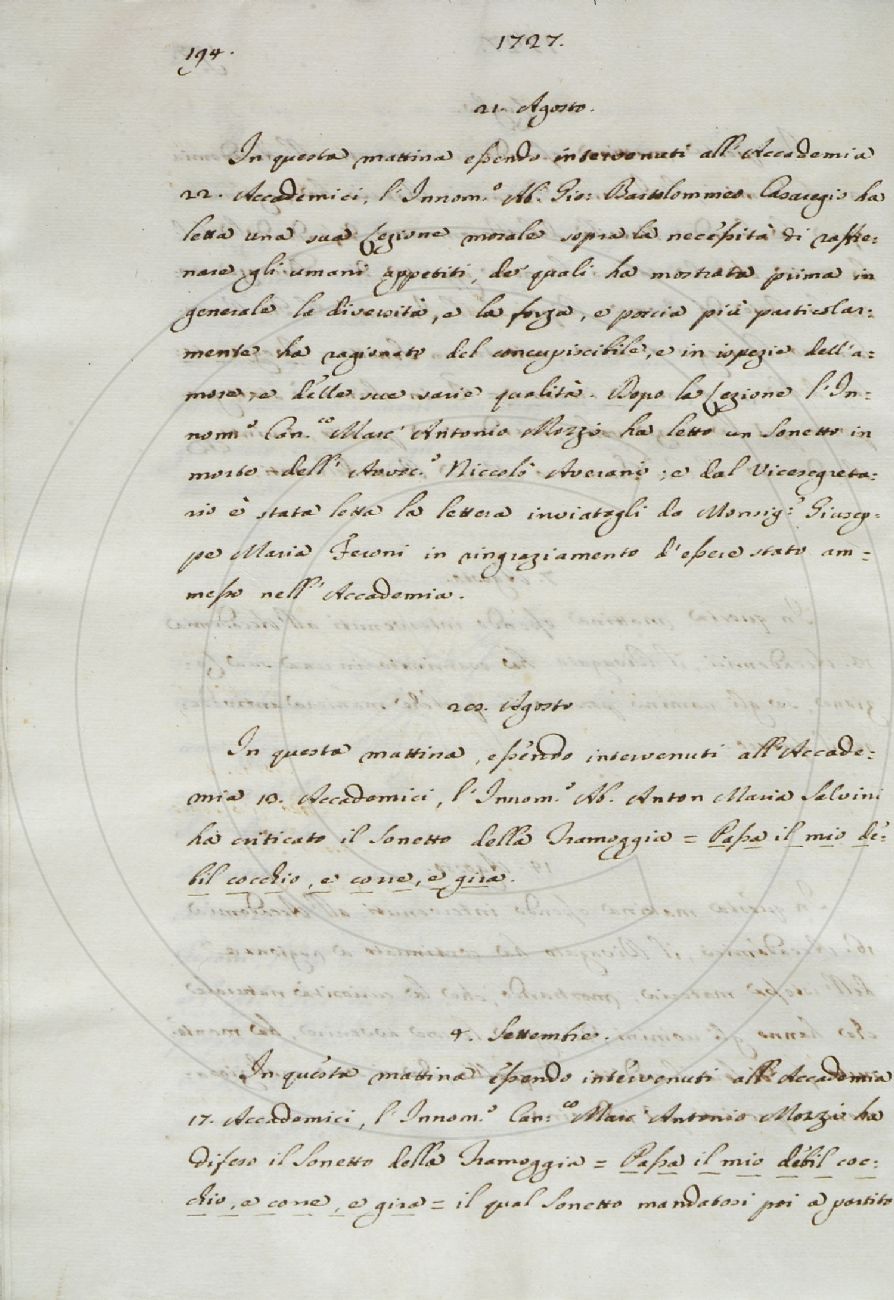 194.
1727.
21. Agosto.
In questa mattina essendo intervenuti all'Accademia
22. Accademici, l'Innom.º Ab. Gio: Bartolommeo Casaregi ha
letta una sua Lezione morale sopra la necessità di raffre:
nare gli umani appetiti, de' quali ha mostrata prima in
generale la diversità, e la forza, e poscia più particolar:
mente ha ragionato del concupiscibile, e in ispezie dell'a:
more, e delle sue varie qualità. Dopo la Lezione l'In:
nom.º Can.co Marc'Antonio Mozzi ha letto un Sonetto in
morte dell'Avvoc.º Niccolò Averani; e dal Vicesegreta:
rio è stata letta la lettera inviatagli da Monsig.r Giusep:
pe Maria Feroni in ringraziamento d'essere stato am:
messo nell'Accademia.
28. Agosto
In questa mattina, essendo intervenuti all'Accade:
mia 18. Accademici, l'Innom.º Ab. Anton Maria Salvini
ha criticato il Sonetto della Tramoggia = Passa il mio dé:
bil cocchio, e corre, e gira.
4. Settembre.
In questa mattina essendo intervenuti all'Accademia
17. Accademici, l'Innom.º Can.co Marc'Antonio Mozzi ha
difeso il Sonetto della Tramoggia = Passa il mio débil coc:
chio, e corre, e gira = il qual Sonetto mandatosi poi a partito